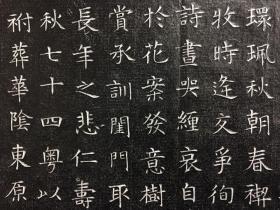 環珮秋朝春禊
牧時逄文爭徇
詩晝哭纏哀自
於花案發意樹
賞承訓閨門耴
長年之悲仁壽
秋七十四粤以
祔葬華陰東原